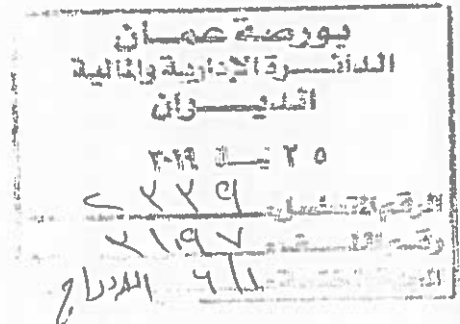 بورصة عمان
الدائرة الإدارية والمالية
الديوان
٢٥ نيسان ٢٠١٩
الرقم المتسلسل ٢٢٢٩
رقم الملف ٢١٩٧
الادراج